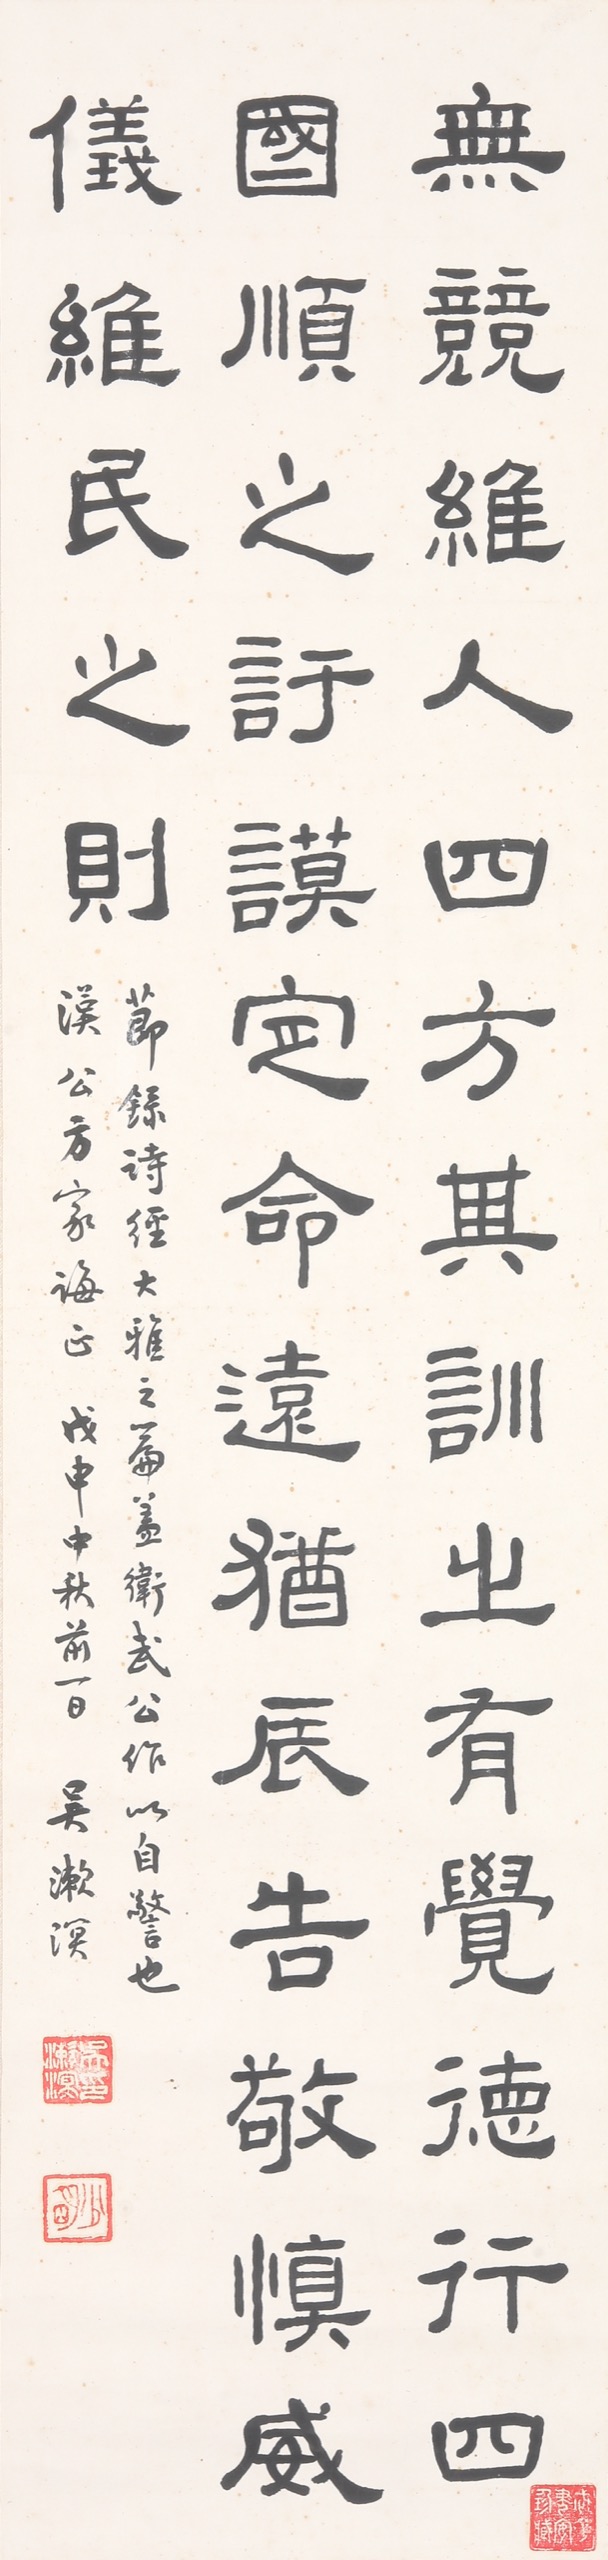 無競維人四方其訓之有覺德行四
國順之訏謨定命遠猶辰告敬慎威
儀維民之則
節錄詩經大雅之篇蓋衛武公作以自警也
漢公方家誨正 戊申中秋前一日 吴漱溟